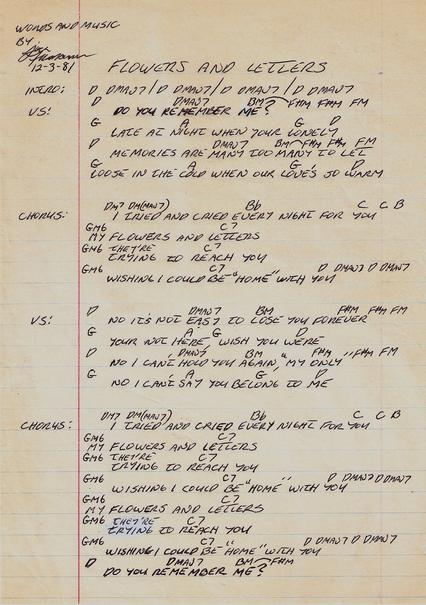 WORDS AND MUSIC
BY:
12-3-81
FLOWERS AND LETTERS
INTRO: D DMAJ7 / D DMAJ7 / D DMAJ7 / D DMAJ7
D DMAJ7 BM F#M F#M FM
VS: DO YOU REMEMBER ME?
G A G D
LATE AT NIGHT WHEN YOUR LONELY
D DMAJ7 BM F#M F#M FM
MEMORIES ARE MANY TOO MANY TO LET
G A G D
LOOSE IN THE COLD WHEN OUR LOVE'S SO WARM
DM7 DM(MAJ7) Bb C C B
CHORUS: I TRIED AND CRIED EVERY NIGHT FOR YOU
GM6 C7
MY FLOWERS AND LETTERS
GM6 THEY'RE C7
TRYING TO REACH YOU
GM6 C7 D DMAJ7 D DMAJ7
WISHING I COULD BE "HOME" WITH YOU
D DMAJ7 BM F#M F#M FM
VS: NO IT'S NOT EASY TO LOSE YOU FOREVER
G A G D
YOUR NOT HERE, WISH YOU WERE
D DMAJ7 BM F#M F#M FM
NO I CAN'T HOLD YOU AGAIN, "MY ONLY"
G A G D
NO I CAN'T SAY YOU BELONG TO ME
DM7 DM(MAJ7) Bb C C B
CHORUS: I TRIED AND CRIED EVERY NIGHT FOR YOU
GM6 C7
MY FLOWERS AND LETTERS
GM6 THEY'RE C7
TRYING TO REACH YOU
GM6 C7 D DMAJ7 D DMAJ7
WISHING I COULD BE "HOME" WITH YOU
GM6 C7
MY FLOWERS AND LETTERS
GM6 THEY'RE C7
TRYING TO REACH YOU
GM6 C7 D DMAJ7 D DMAJ7
WISHING I COULD BE "HOME" WITH YOU
D DMAJ7 BM F#M
DO YOU REMEMBER ME?